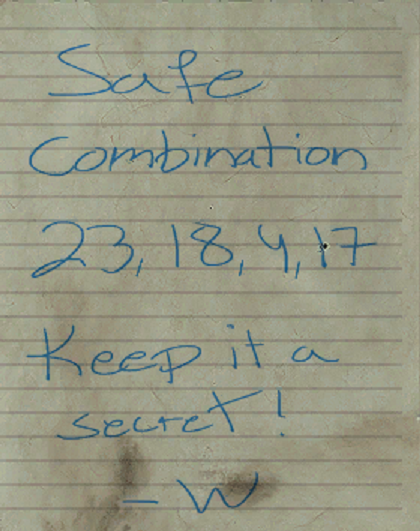 Safe
Combination
23, 18, 4, 17
Keep it a
secret!
- W